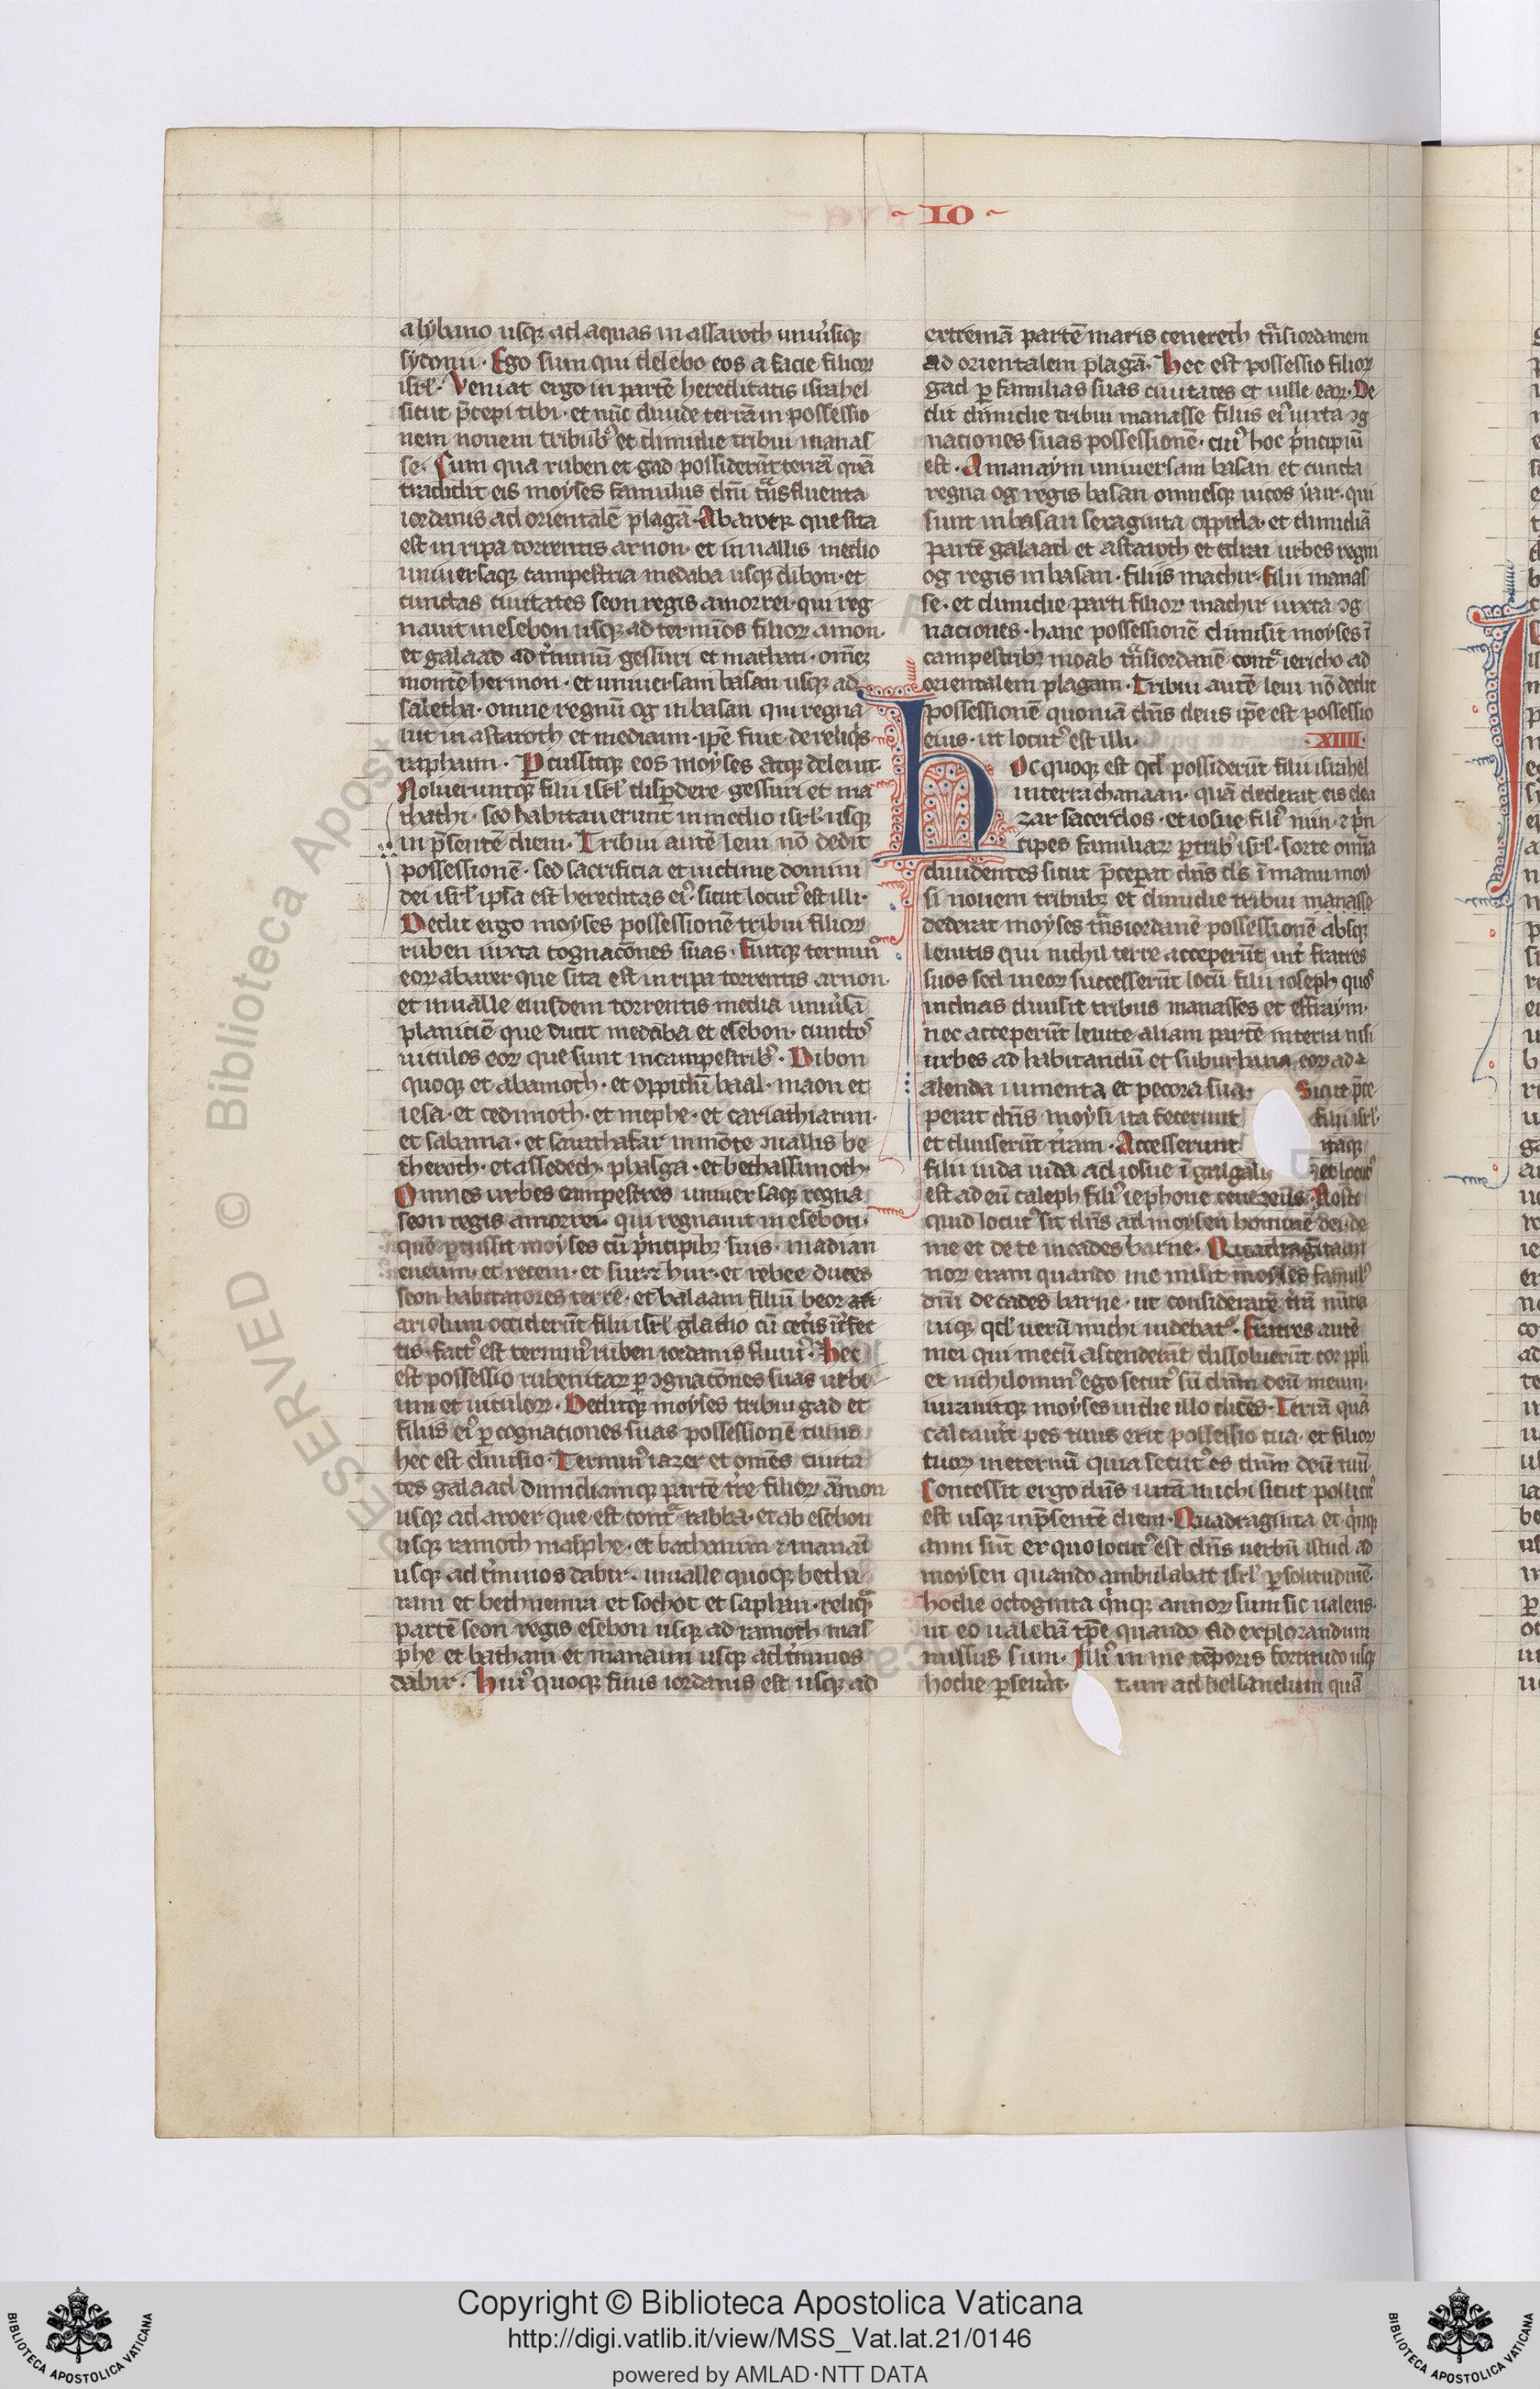 ~ IO ~
a lybano usq; ad aquas in assaroth uniu'siq;
sydonii · Ego sum qui delebo eos a facie filioꝝ
isrl'· Veniat ergo in partē hereditatis israhel
sicut p̄cepi tibi · et nūc diuide terrā in possessio
nem nouem tribub' et dimidie tribui manas
se · Cum qua ruben et gad possiderūt terrā quā
tradidit eis moyses famulus dn̄i tn̄s fluenta
iordanis ad orientalē plagā · Abaroer que sita
est in ripa torrentis arnon · et in uallis medio
uniuersaq; campestria medaba usq; dibon · et
cunctas ciuitates seon regis amorrei · qui reg
nauit in esebon usq; ad terminos filioꝝ amon ·
et galaad ad t'minū gessuri et mathati · om̄eꝫ
montē hermon · et uniuersam basan usq; ad
saletha · omne regnū og in basan qui regna
uit in astaroth et mediaim · ip̄e fuit de reliq's
raphaim · Pcussitq; eos moyses atq; deleuit
Nolueruntq; filii isrl' disꝑdere gessuri et ma
thathi · sed habitauerunt in medio isrl' usq;
in p̄sentē diem · Tribui autē leui nō dedit
possessionē · sed sacrificia et uictime domini
dei isrl' ipsa est hereditas ei' · sicut locut' est illi ·
Dedit ergo moyses possessionē tribui filioꝝ
ruben iuxta cognacōnes suas · fuitq; termin'
eoꝝ abarer que sita est in ripa torrentis arnon ·
et in ualle eiusdem torrentis media uniu'sā
planiciē que ducit medaba et esebon · cunctos
uiculos eoꝝ que sunt in campestrib' · Dibon
quoq; et abamoth · et oppidū baal · maon et
iesa · et cedimoth · et mephe · et cariathiarim ·
et sabama · et sarathasar in mōte ↄuallis be
theroth · et assedech · phasga · et bethassimoth ·
Omnes urbes campestres uniuersaq; regna
seon regis amorrei · qui regnauit in esebon ·
quē ꝑcussit moyses cū p'ncipibꝫ suis · madian
eueum · et recem · et sur · ⁊ hur · et rebee duces
seon habitatores terre · et balaam filiū beor
ariolum occiderūt filii isrl' gladio cū cet'is int'fec
tis · fact' est termin' ruben iordanis fluui' · Hec
est possessio rubenitaꝝ ꝑ ↄgnacōnes suas urbi
um et uiculoꝝ · Deditq; moyses tribui gad et
filiis ei' ꝑ cognationes suas possessionē cuius
hec est diuisio · Termin' iazer et om̄es ciuita
tes galaad dimidiamq; partē t're filioꝝ āmon
usq; ad aroer que est contᵃ rabba · et ab esebon
usq; ramoth masphe · et bathanim ⁊ manai
usq; ad t'minos dabir · in ualle quoq; betha
ram et bethnemra et sochot et saphan · reliqᵃ
partē seon regis esebon usq; ad ramoth mas
phe et batham et manaim usq; ad t'minos
dabir · Hui' quoq; finis iordanis est usq; ad
extremā partē maris cenereth tn̄siordanem
ad orientalem plagā · Hec est possessio filioꝝ
gad ꝑ familias suas ciuitates et uille eaꝝ · De
dit dimidie tribui manasse filiis ei' iuxta ↄg
nationes suas possessionē · cui' hoc p'ncipiū
est · A manaym uniuersam basan et cuncta
regna og regis basan omnesq; uicos yair · qui
sunt in basan sexaginta oppida · et dimidiā
partē galaad et astaroth et edrai urbes regni
og regis in basan · filiis machir · filii manas
se · et dimidie parti filioꝝ machir iuxta ↄg
naciones · hanc possessionē diuisit moyses ī
campestribꝫ moab tn̄siordanē · contᵃ iericho ad
orientalem plagam · Tribui autē leui nō dedit
possessionē quoniā dn̄s deus ip̄e est possessio
eius · ut locut' est illi · · XIIII ·
Hoc quoq; est qd' possiderūt filii israhel
in terra chanaan · quā dederat eis elea
zar sacerdos · et iosue fili' nun · ⁊ p'n
cipes familiaꝝ ꝑ trib' isrl' · sorte omīa
diuidentes sicut p̄ceperat dn̄s d's ī manu moy
si nouem tribubꝫ et dimidie tribui manasse
dederat moyses tn̄siordanē possessionē absq;
leuitis qui nichil terre acceperūt int' fratres
suos sed in eoꝝ successerūt locū filii ioseph quos
in duas diuisit tribus manasses et effraym ·
nec acceperūt leuite aliam partē in terra nisi
urbes ad habitandū et suburbana eoꝝ ad
alenda iumenta et pecora sua · Sicut p̄ce
perat dn̄s moysi ita fecerunt filii isrl'
et diuiserūt t'ram · Accesserunt itaq;
filii iuda iuda ad iosue ī galgalis et locut'
est ad eū caleph fili' iephone cenezeus · Nosti
quid locut' sit dn̄s ad moysen hominē dei · de
me et de te in cades barne · Quadraginta an
noꝝ eram quando me misit moyses famul'
dn̄i de cades barne · ut considerarē t'rā nūcia
uiq; qd' uerū michi uidebat' · fratres autē
mei qui mecū ascenderāt dissoluerūt cor ppli
et nichilomin' ego secut' sū dn̄m deū meum ·
iurauitq; moyses in die illo dicēs · Terrā quā
calcau't pes tuus erit possessio tua · et filioꝝ
tuoꝝ in eternū quia secut' es dn̄m deū tuū ·
Concessit ergo dn̄s uitā michi sicut pollicit'
est usq; in p̄sentē diem · Quadraginta et q'nq;
anni sūt ex quo locut' est dn̄s uerbū istud ad
moysen quando ambulabat isrl' ꝑ solitudinē
hodie octoginta q'nq; annoꝝ sum sic ualens ·
ut eo ualebā tp̄e quando ad explorandum
missus sum · Illi' in me tēporis fortitudo usq;
hodie ꝑseu'at · tam ad bellandum quā
Copyright © Biblioteca Apostolica Vaticana
http://digi.vatlib.it/view/MSS_Vat.lat.21/0146
powered by AMLAD·NTT DATA
BIBLIOTECA APOSTOLICA VATICANA
BIBLIOTECA APOSTOLICA VATICANA